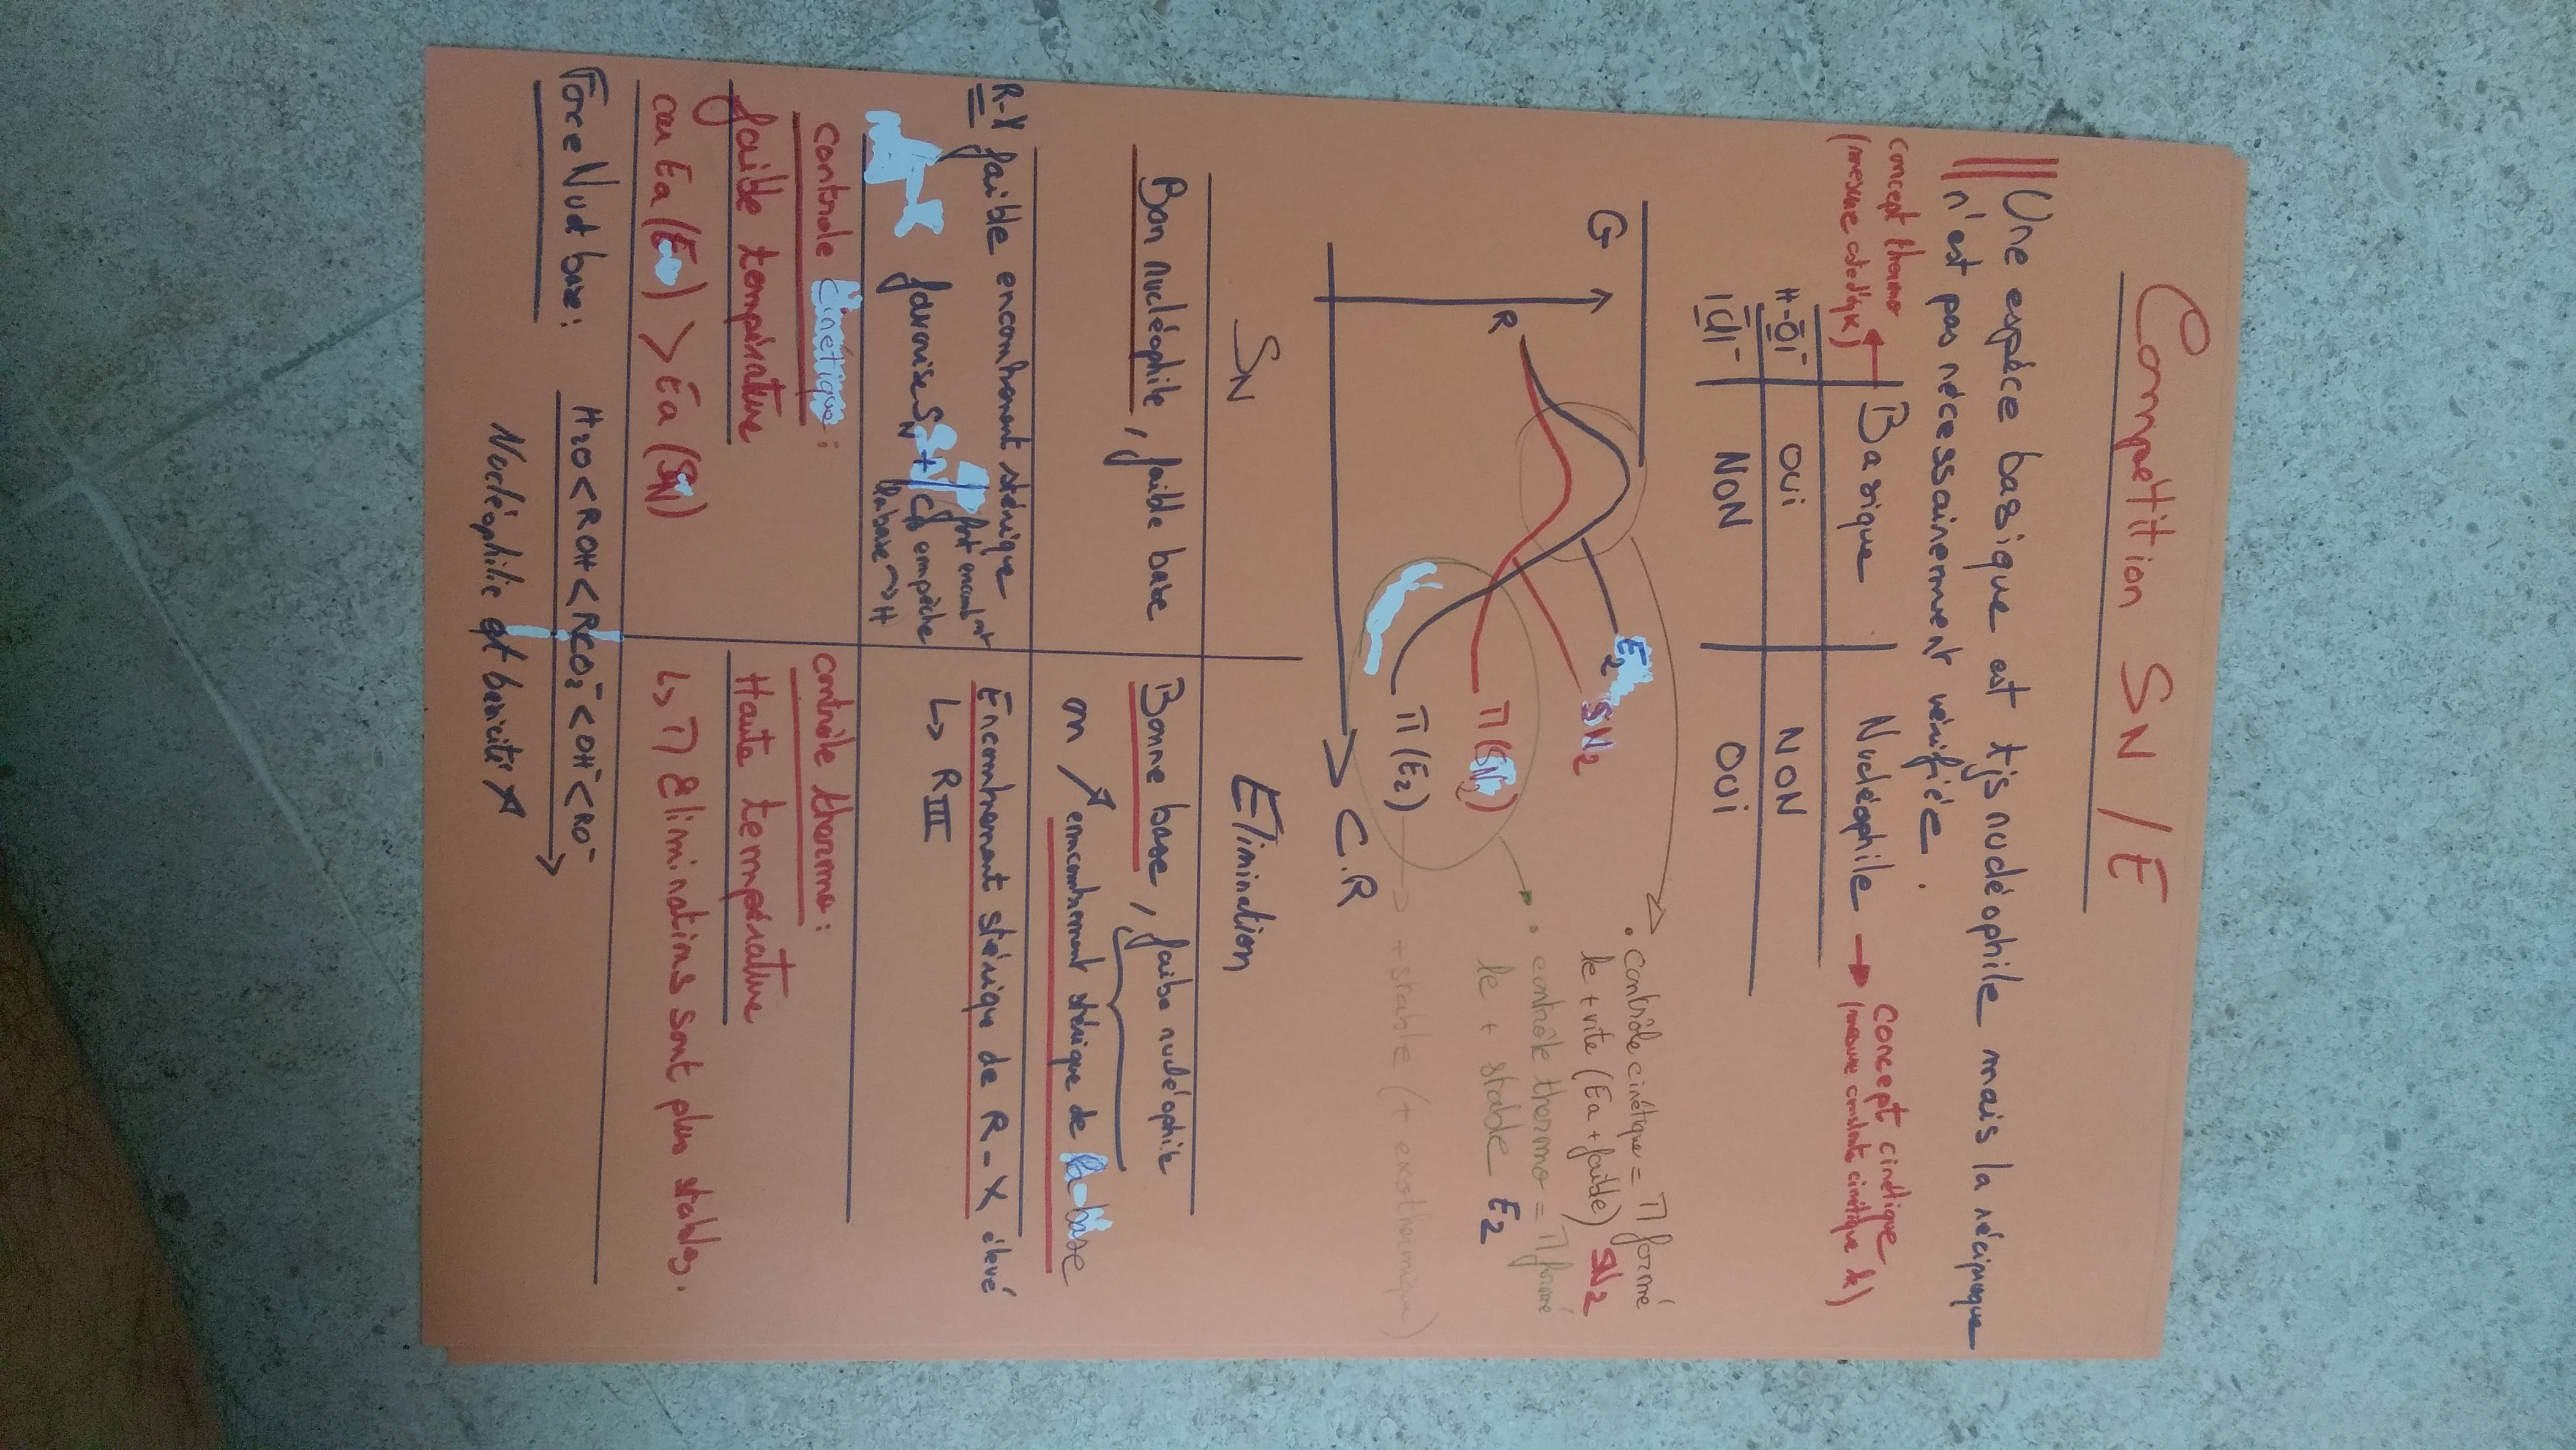 Compétition SN / E
Une espèce basique est tjs nucléophile mais la réciproque
n'est pas nécessairement vérifiée.
concept thermo
(mesure cste d'éq K)
Basique
Nucléophile
concept cinétique
(mesure constante cinétique k)
H-O|⁻ OUI NON
|Cl|⁻ NON OUI
G
R
E2
SN2
Π (SN2)
Π (E2) → + stable (+ exothermique)
C.R
• contrôle cinétique = Π formé
le + vite (Ea + faible) SN2
• contrôle thermo = Π formé
le + stable E2
SN
Elimination
Bon nucléophile, faible base
Bonne base, faibe nucléophie
on ↗ emcombrement stérique de la base
R-X faible encombrement stérique
favorise SN
fort encombt
empêche
la base → H
Encombrement stérique de R-X élevé
↳ RIII
contrôle cinétique :
faible température
car Ea (E) > Ea (SN)
contrôle thermo :
Haute température
↳ Π éliminations sont plus stables.
Force Nu et base :
H2O < ROH < RCO2⁻ < OH⁻ < RO⁻
Nucléophilie et basicité ↗